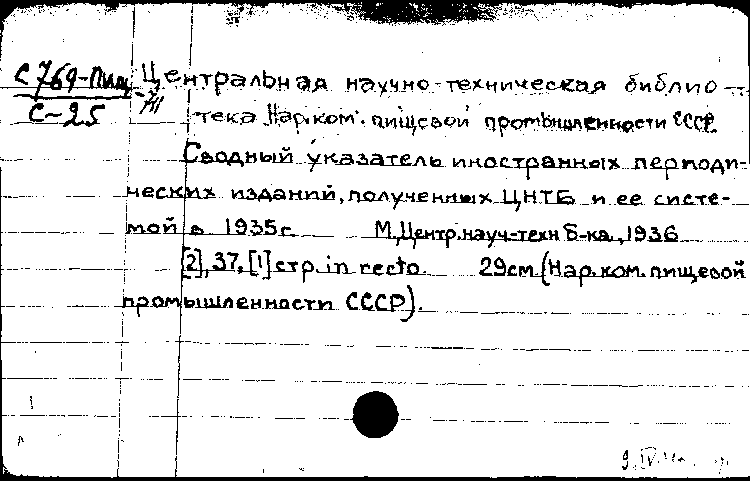 С769-Пищ Центральная научно-техническая библио-
С-25 тека Нар.ком. пищевой промышленности СССР
Сводный указатель иностранных периоди-
ческих изданий, полученных ЦНТБ и ее систе-
мой в 1935г. М, Центр.науч-техн Б-ка, 1936
[2], 37, [1] стр. in recto. 29см (Нар.ком. пищевой
промышленности СССР).